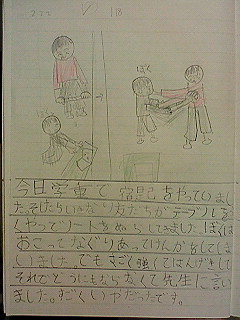 ぼく
ぼく
今日学童で宿題をやっていまし
たそしたらいきなり友だちがテーブルを
くやってノートをぬらしてきましたぼくは
おこってなぐりあってけんかをしてしま
いました。でもすごく強くて
それでどうにもならなくて先生に言い
ました。すごくいやだったです。